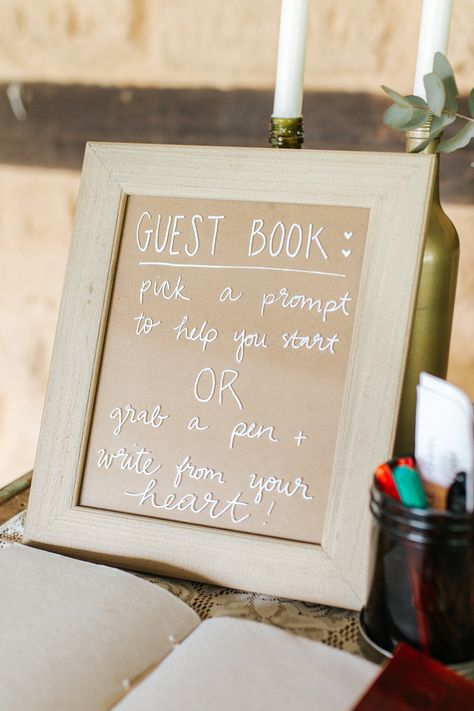 GUEST BOOK :
pick a prompt
to help you start
OR
grab a pen +
write from your
heart!